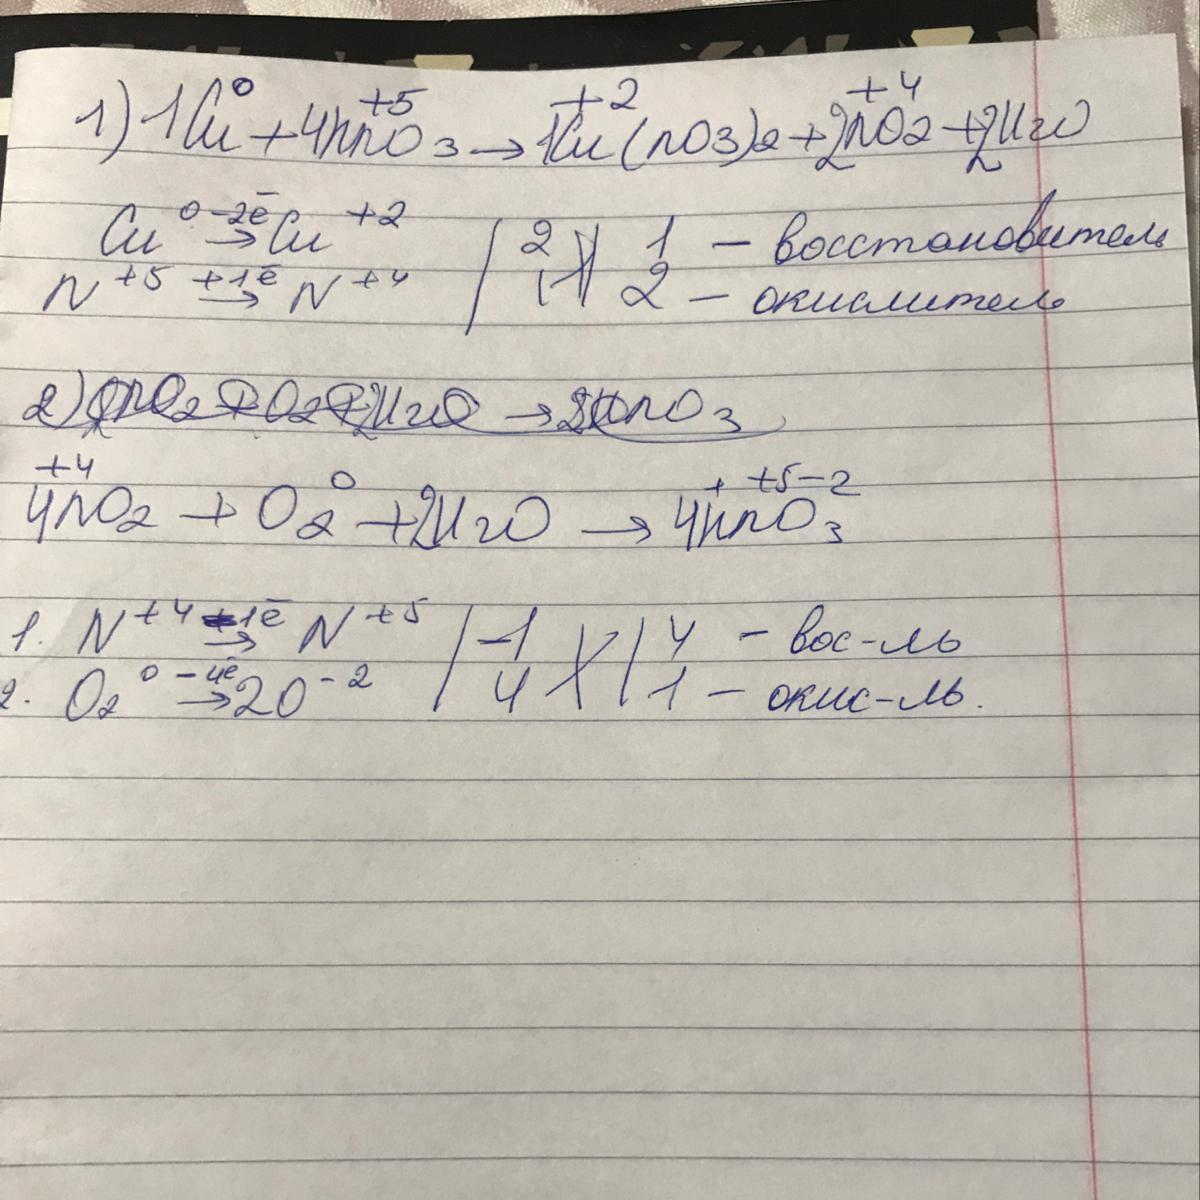 1) 1Cu⁰ + 4HNO₃ → 1Cu(NO₃)₂ + 2NO₂ + 2H₂O
+5 +2 +4
Cu⁰ -2ē → Cu⁺² | 2 | 1 – восстановитель
N⁺⁵ +1ē → N⁺⁴ | 1 | 2 – окислитель
2)
+4 0 + +5 -2
4NO₂ + O₂ + 2H₂O → 4HNO₃
1. N⁺⁴ -1ē → N⁺⁵ | 1 | 4 – вос-ль
2. O₂⁰ -4ē → 2O⁻² | 4 | 1 – окис-ль.